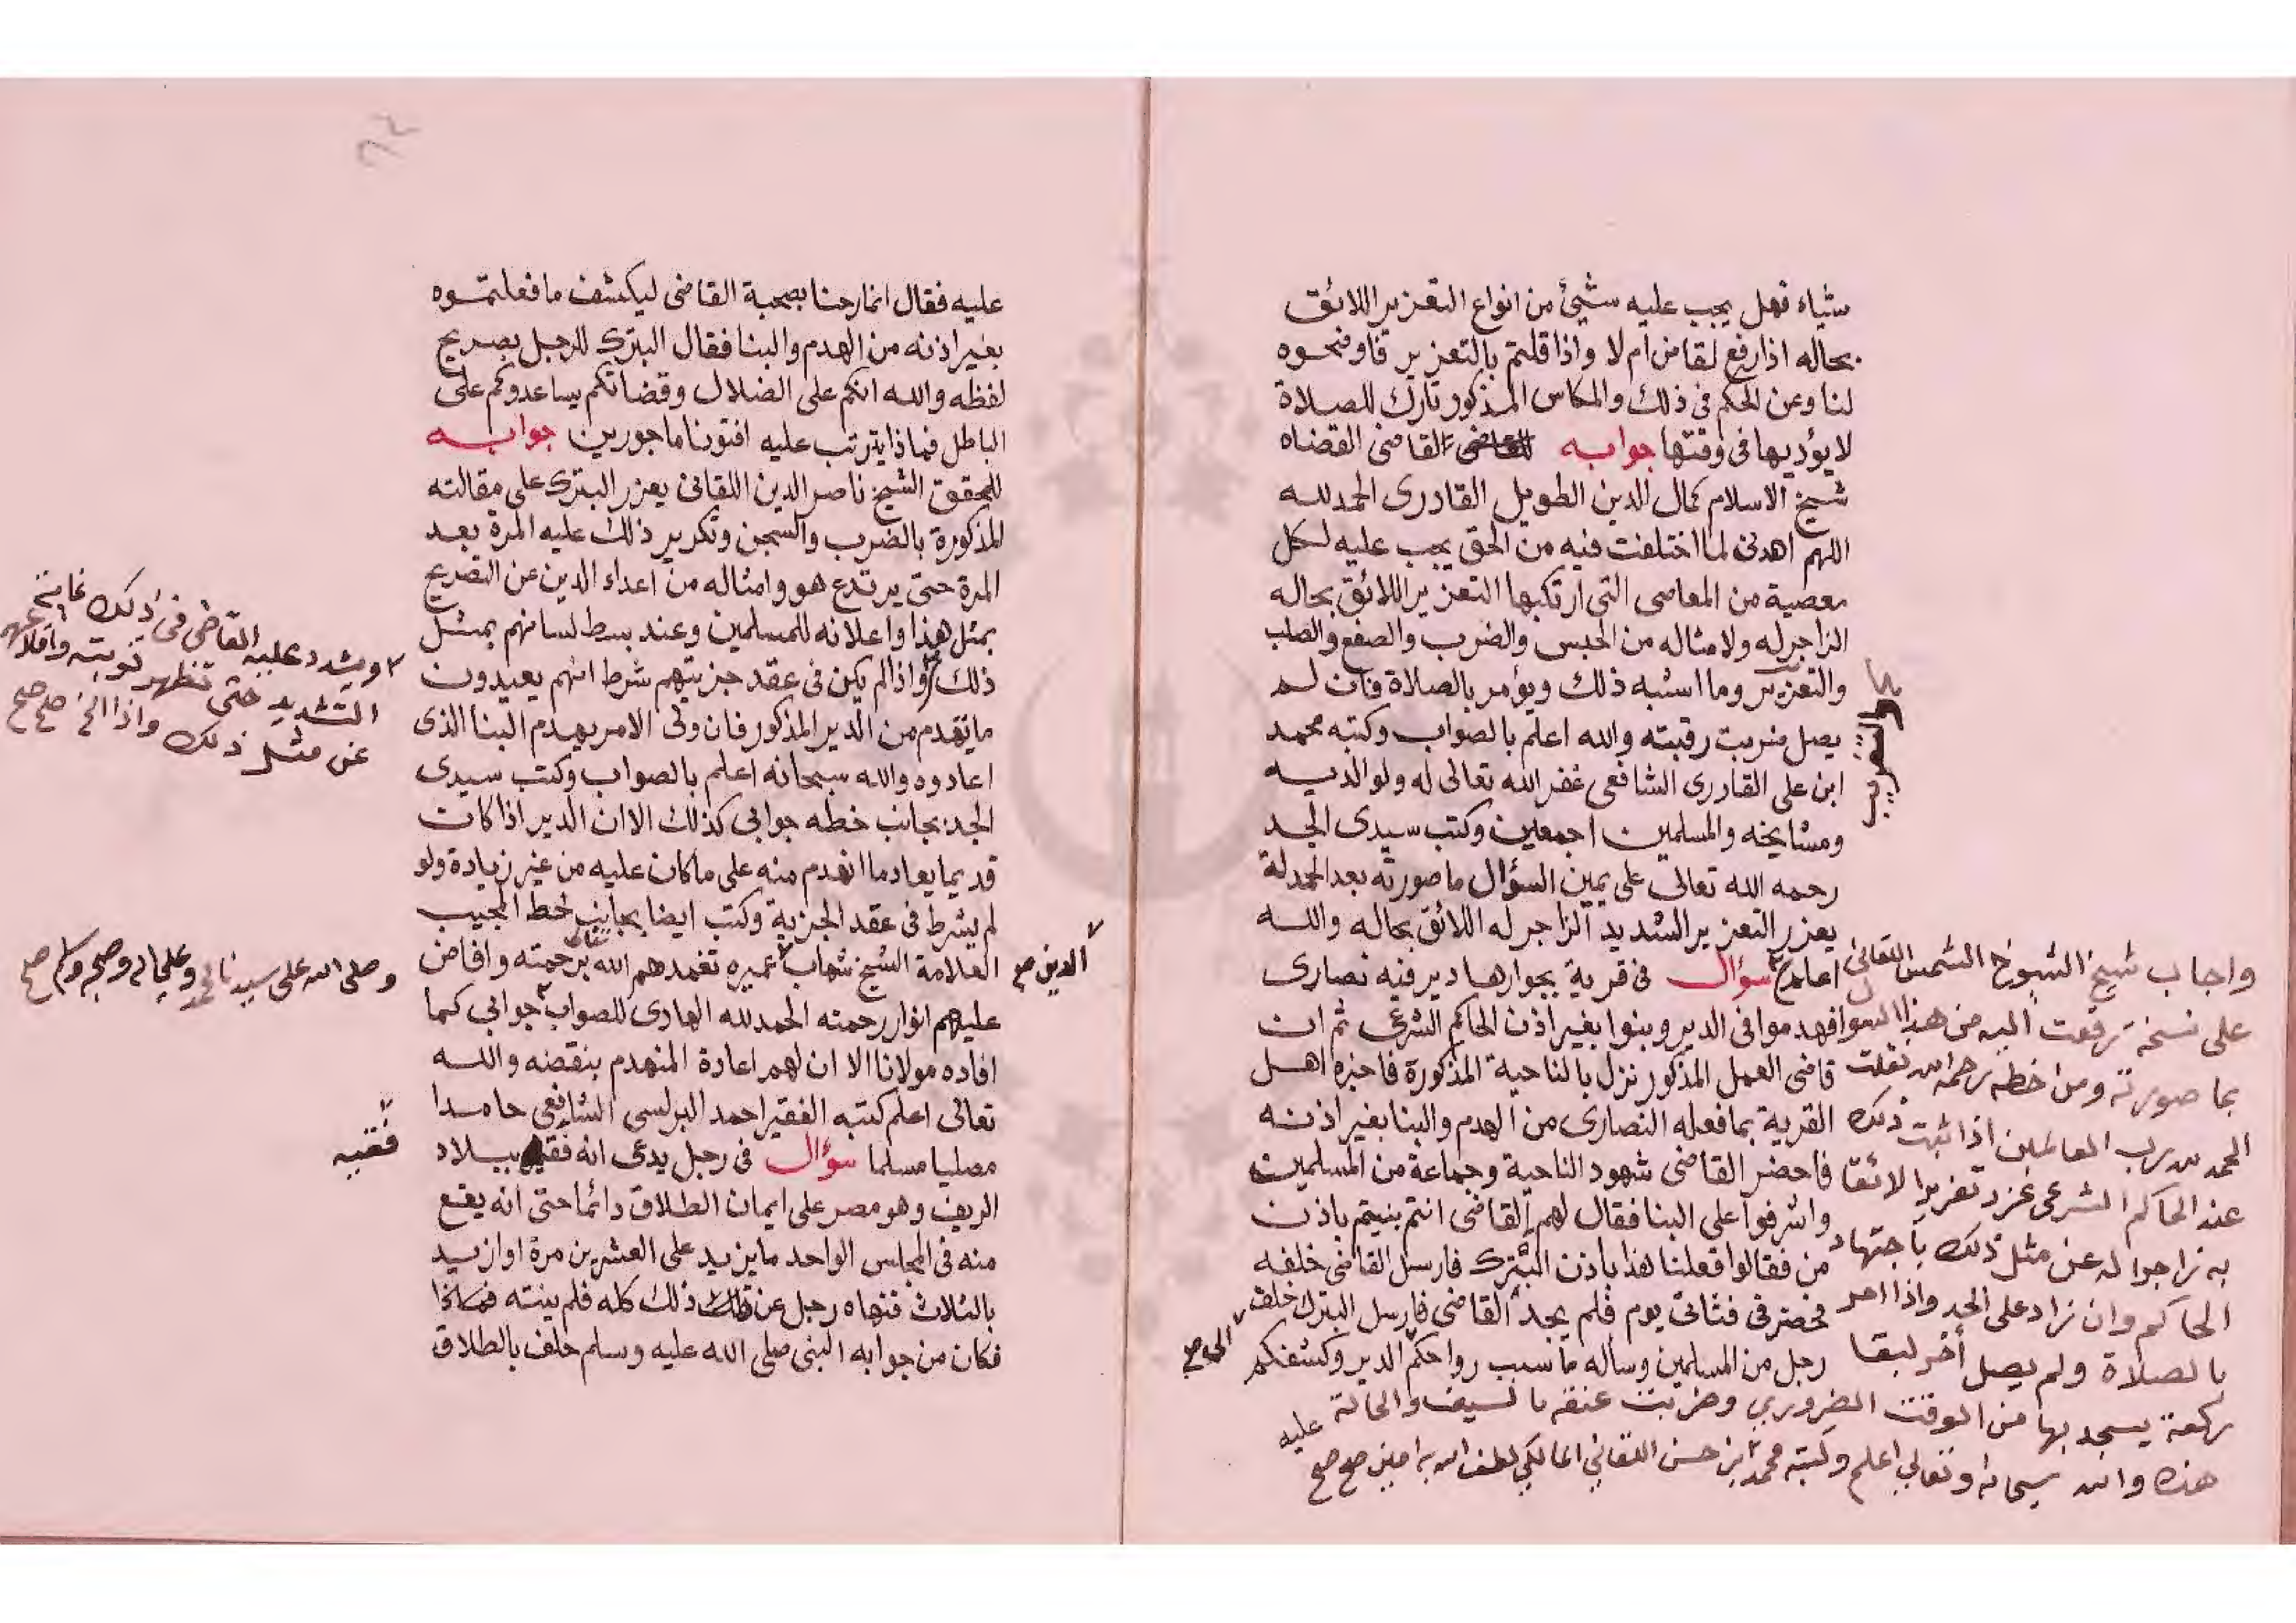 شياء فهل يجب عليه شيئ من انواع التعزير اللائق
بحاله اذا رفع لقاض ام لا واذا قلتم بالتعزير فاوضحوه
لنا وعن الحكم فى ذلك والمكاس المذكور تارك للصلاة
لا يؤديها فى وقتها جوابه القاضى القضاه
شيخ الاسلام كمال الدين الطويل القادرى الحمد لله
اللهم اهدنى لما اختلفت فيه من الحق يجب عليه لكل
معصية من المعاصى التى ارتكبها التعزير اللائق بحاله
الزاجر له ولامثاله من الحبس والضرب والصفع والصلب
والتعزير وما اشبه ذلك ويؤمر بالصلاة فان لم
يصل ضربت رقبته والله اعلم بالصواب وكتبه محمد
ابن على القادرى الشافعى غفر الله تعالى له ولوالديه
ومشايخه والمسلمين اجمعين وكتب سيدى الجد
رحمه الله تعالى على يمين السؤال ما صورته بعد الحمدلة
يعزر التعزير الشديد الزاجر له اللائق بحاله والله
اعلم سؤال فى قرية بجوارها دير فيه نصارى
فهدموا فى الدير وبنوا بغير اذن الحاكم الشرعى ثم ان
قاضى العمل المذكور نزل بالناحية المذكورة فاخبره اهل
القرية بما فعله النصارى من الهدم والبنا بغير اذنه
فاحضر القاضى شهود الناحية وجماعة من المسلمين
واشرفوا على البنا فقال لهم القاضى انتم بنيتم باذن
من فقالوا فعلنا هذا باذن البترك فارسل القاضى خلفه
فحضر فى ثانى يوم فلم يجد القاضى فارسل البترك خلف
رجل من المسلمين وساله ما سبب رواحكم الدير وكشفكم
عليه
واجاب شيخ الشيوخ الشمس اللقانى
على نسخة رفعت اليه من هذا السوال
بما صورته ومن خطه رحمه الله نقلت
الحمد لله رب العالمين اذا ثبت ذلك
عند الحاكم الشرعى عزر تعزيرا لائقا
به زاجرا له عن مثل ذلك باجتهاد
الحاكم وان زاد على الحد واذا امر
بالصلاة ولم يصل أخر لبقا
ركعة يسجد بها من الوقت الضرورى وضربت عنقه بالسيف والحالة
هذه والله سبحانه وتعالى اعلم وكتبه محمد ابن حسن اللقانى المالكى لطف الله به امين صح صح
عليه فقال انما رحنا بصحبة القاضى ليكشف ما فعلتموه
بغير اذنه من الهدم والبنا فقال البترك للرجل بصريح
لفظه والله انكم على الضلال وقضاتكم يساعدوكم على
الباطل فماذا يترتب عليه افتونا ماجورين جوابه
للمحقق الشيخ ناصر الدين اللقانى يعزر البترك على مقالته
المذكورة بالضرب والسجن وتكرير ذلك عليه المرة بعد
المرة حتى يرتدع هو وامثاله من اعداء الدين عن التصريح
بمثل هذا واعلانه للمسلمين وعند بسط لسانهم بمثل
ذلك واذا لم يكن فى عقد جزيتهم شرط انهم يعيدون
ما تهدم من الدير المذكور فان ولى الامر يهدم البنا الذى
اعادوه والله سبحانه اعلم بالصواب وكتب سيدى
الجد بجانب خطه جوابى كذلك الا ان الدير اذا كان
قديما يعاد ما انهدم منه على ما كان عليه من غير زيادة ولو
لم يشرط فى عقد الجزية وكتب ايضا بجانب خط المجيب
العلامة الشيخ شهاب عميره تغمدهم الله برحمته وافاض
عليهم انوار رحمته الحمد لله الهادى للصواب جوابى كما
افاده مولانا الا ان لهم اعادة المنهدم بنقضه والله
تعالى اعلم كتبه الفقير احمد البرلسى الشافعى حامدا
مصليا مسلما سؤال فى رجل يدعى انه فقيه ببلاد
الريف وهو مصر على ايمان الطلاق دائما حتى انه يقع
منه فى المجلس الواحد ما يزيد على العشرين مرة او ازيد
بالثلاث فنهاه رجل عن ذلك كله فلم ينته
فكان من جوابه النبى صلى الله عليه وسلم حلف بالطلاق
ويشدد عليه القاضى فى ذلك غاية
التشديد حتى تظهر توبته واقلاعهم
عن مثل ذلك واذا الخ صح صح
الدين صح
وصلى الله على سيدنا محمد وعلى اله وصحبه وسلم صح
فقيه